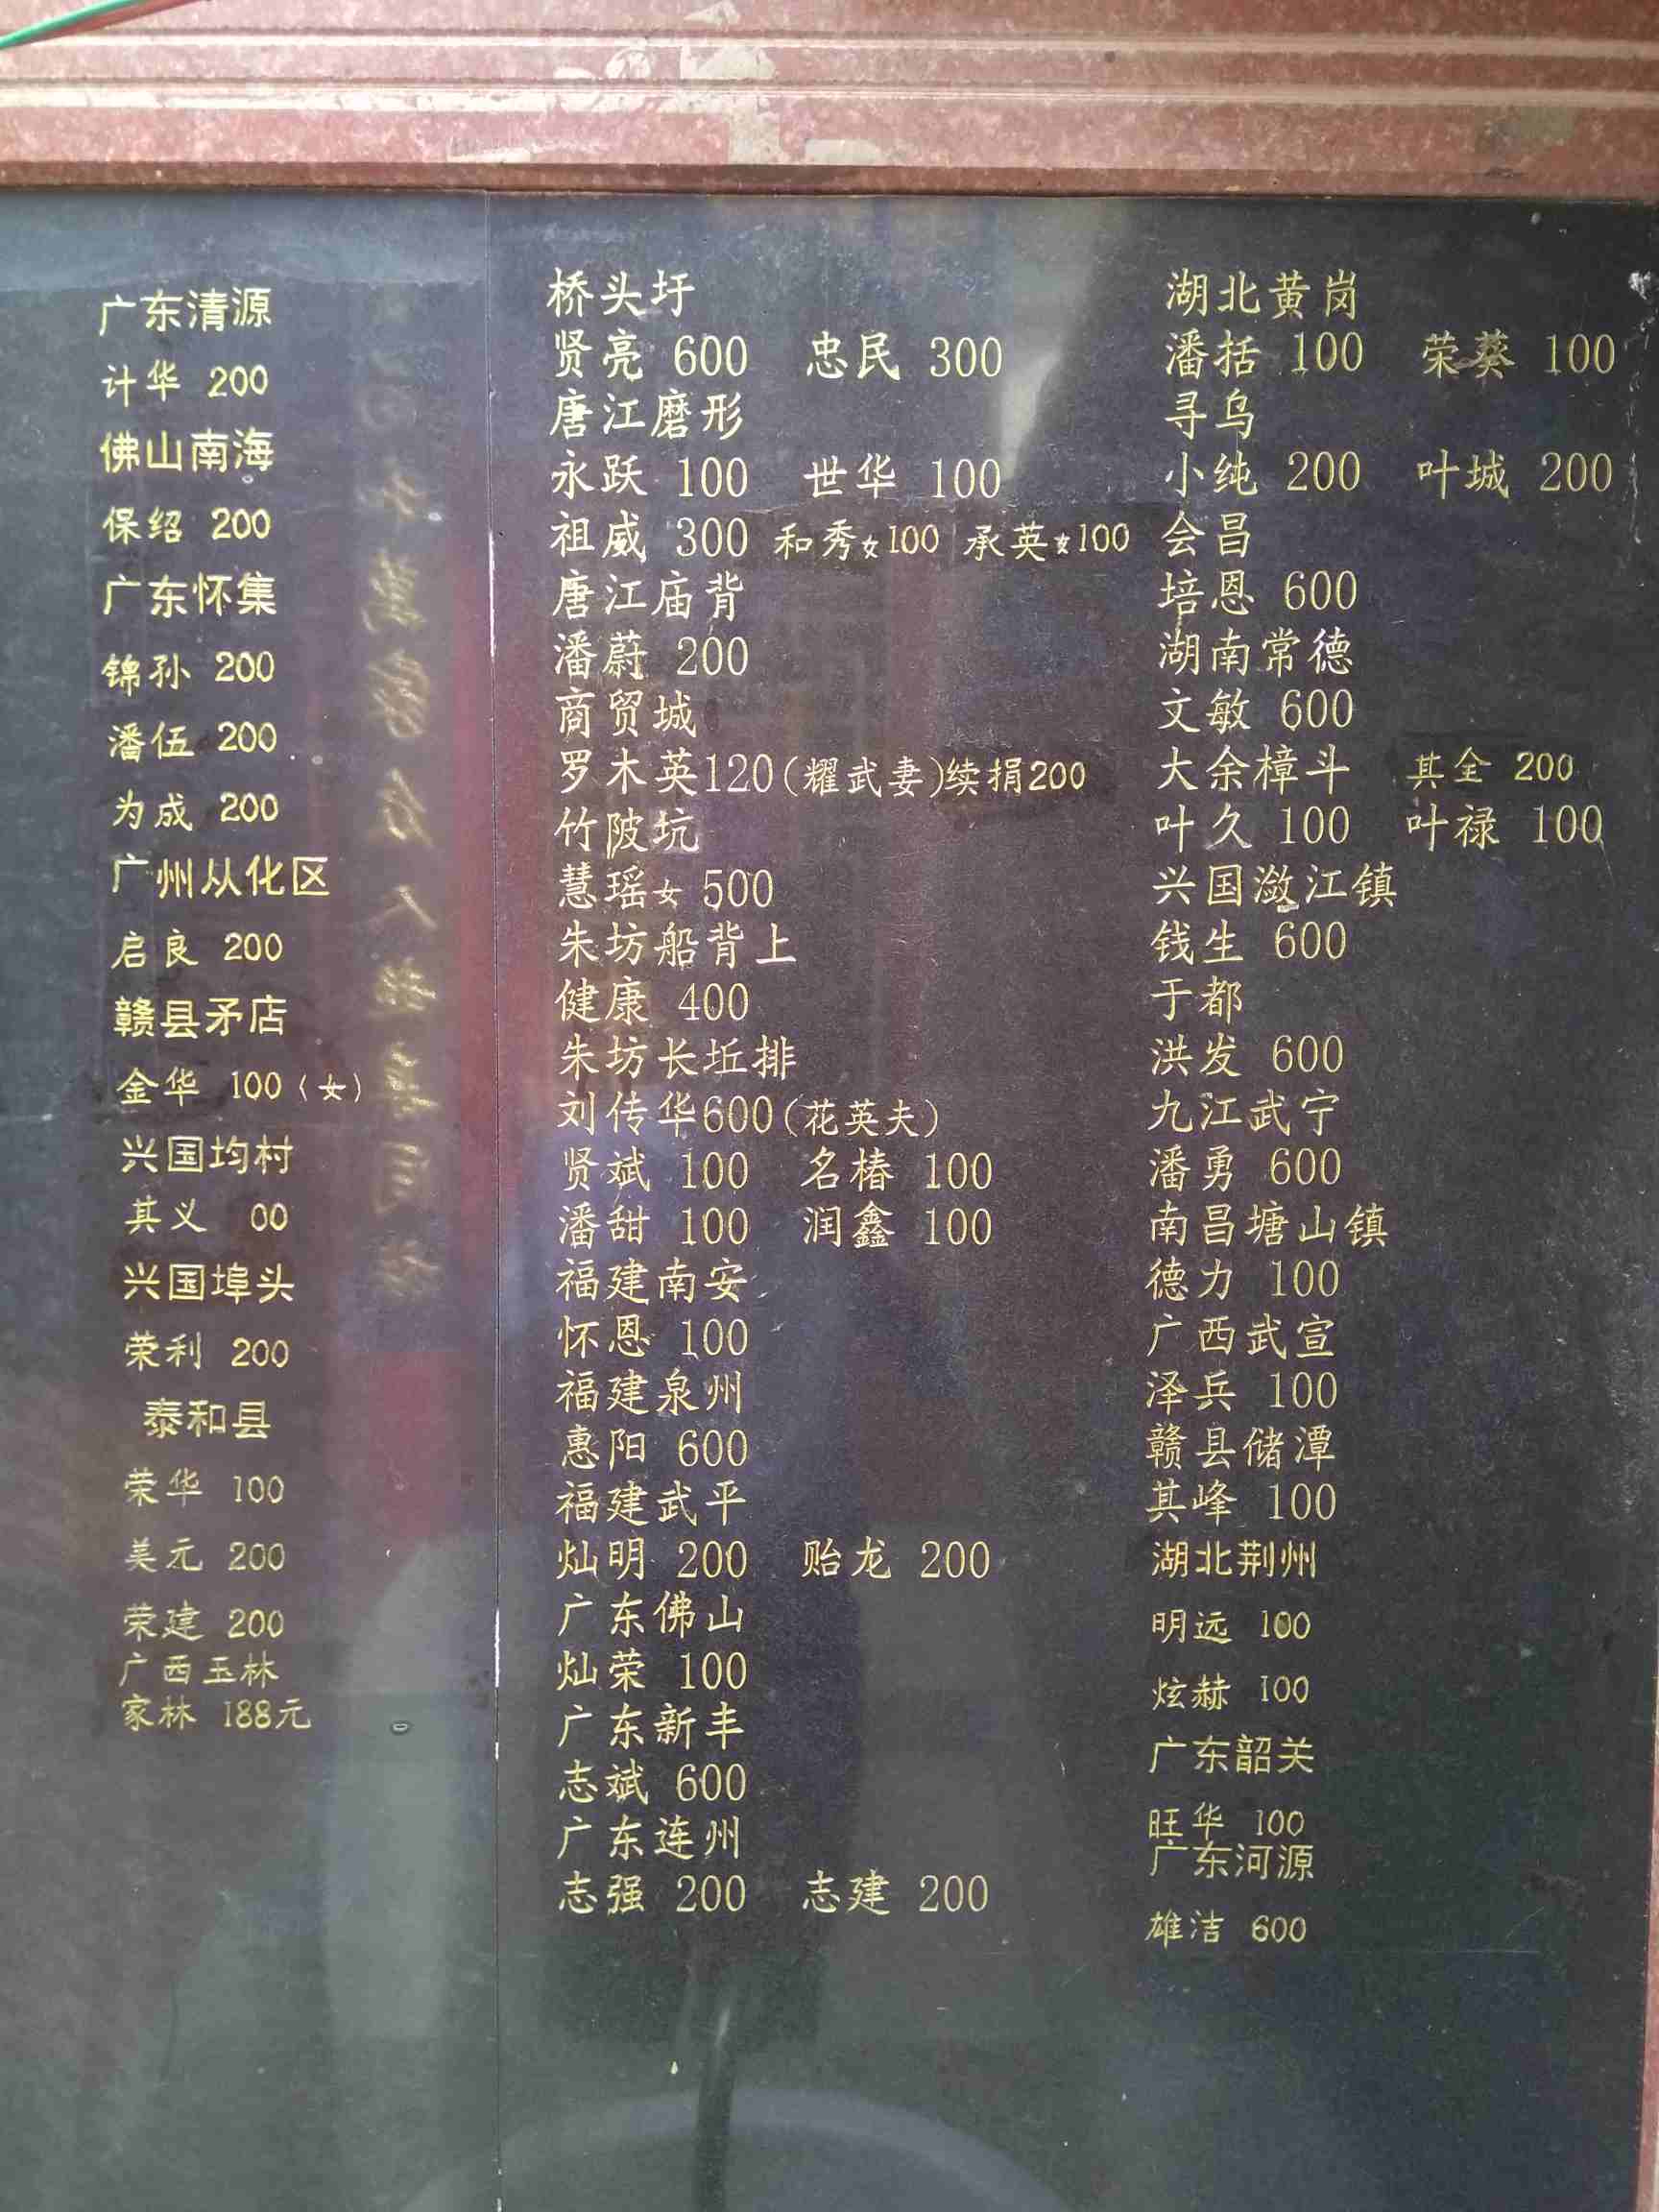 广东清源
计华 200
佛山南海
保绍 200
广东怀集
锦孙 200
潘伍 200
为成 200
广州从化区
启良 200
赣县矛店
金华 100（女）
兴国均村
其义 00
兴国埠头
荣利 200
泰和县
荣华 100
美元 200
荣建 200
广西玉林
家林 188元
桥头圩
贤亮 600 忠民 300
唐江磨形
永跃 100 世华 100
祖威 300 和秀女100 承英女100
唐江庙背
潘蔚 200
商贸城
罗木英120(耀武妻)续捐200
竹陂坑
慧瑶女 500
朱坊船背上
健康 400
朱坊长坵排
刘传华600(花英夫)
贤斌 100 名椿 100
潘甜 100 润鑫 100
福建南安
怀恩 100
福建泉州
惠阳 600
福建武平
灿明 200 贻龙 200
广东佛山
灿荣 100
广东新丰
志斌 600
广东连州
志强 200 志建 200
湖北黄岗
潘括 100 荣葵 100
寻乌
小纯 200 叶城 200
会昌
培恩 600
湖南常德
文敏 600
大余樟斗 其全 200
叶久 100 叶禄 100
兴国潋江镇
钱生 600
于都
洪发 600
九江武宁
潘勇 600
南昌塘山镇
德力 100
广西武宣
泽兵 100
赣县储潭
其峰 100
湖北荆州
明远 100
炫赫 100
广东韶关
旺华 100
广东河源
雄洁 600